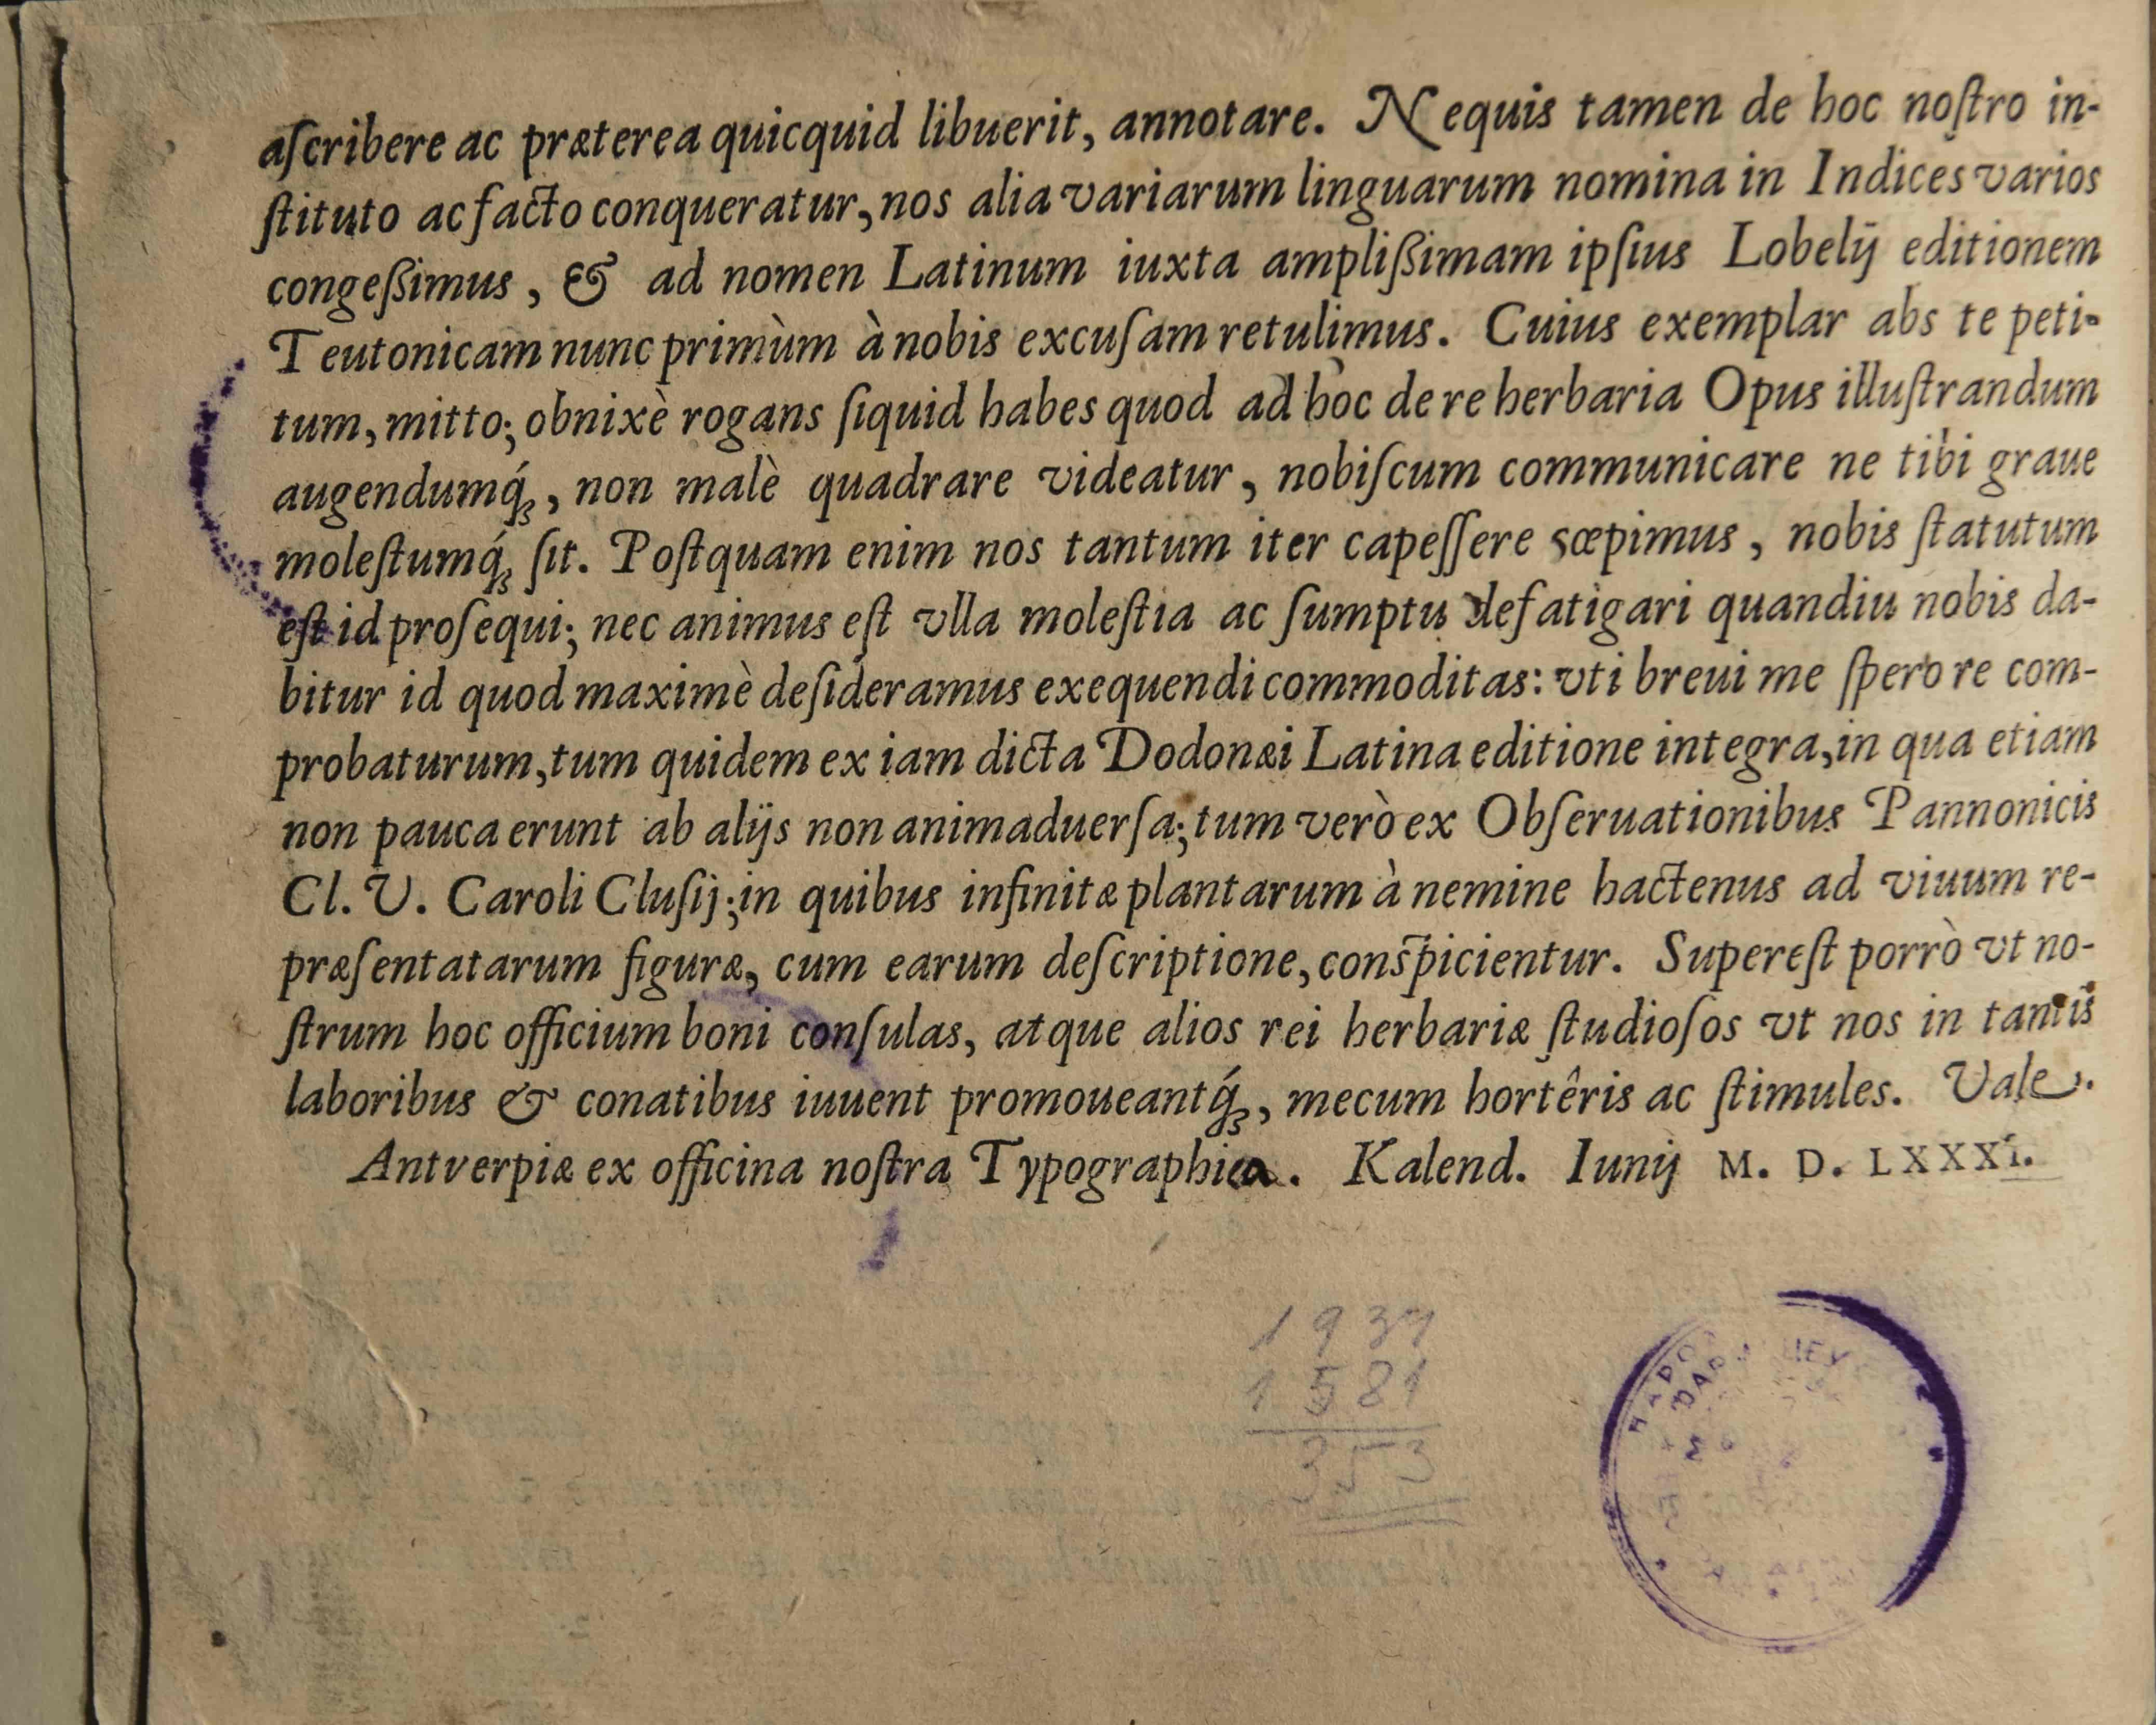 aſcribere ac præterea quicquid libuerit, annotare. Nequis tamen de hoc noſtro in-
ſtituto ac facto conqueratur, nos alia variarum linguarum nomina in Indices varios
congeßimus, & ad nomen Latinum iuxta amplißimam ipſius Lobelij editionem
Teutonicam nunc primùm à nobis excuſam retulimus. Cuius exemplar abs te peti-
tum, mitto; obnixè rogans ſiquid habes quod ad hoc de re herbaria Opus illuſtrandum
augendumq́ꝫ, non malè quadrare videatur, nobiſcum communicare ne tibi graue
moleſtumq́ꝫ ſit. Poſtquam enim nos tantum iter capeſſere sœpimus, nobis ſtatutum
eſt id proſequi; nec animus eſt vlla moleſtia ac ſumptu defatigari quandiu nobis da-
bitur id quod maximè deſideramus exequendi commoditas: vti breui me ſpero re com-
probaturum, tum quidem ex iam dicta Dodonæi Latina editione integra, in qua etiam
non pauca erunt ab alijs non animaduerſa; tum verò ex Obſeruationibus Pannonicis
Cl. V. Caroli Cluſij; in quibus infinitæ plantarum à nemine hactenus ad viuum re-
præſentatarum figuræ, cum earum deſcriptione, conſpicientur. Supereſt porrò vt no-
ſtrum hoc officium boni conſulas, atque alios rei herbariæ ſtudioſos vt nos in tantis
laboribus & conatibus iuuent promoueantq́ꝫ, mecum hortêris ac ſtimules. Vale.
Antverpiæ ex officina noſtra Typographica. Kalend. Iunij M. D. LXXXI.
1934
1581
353